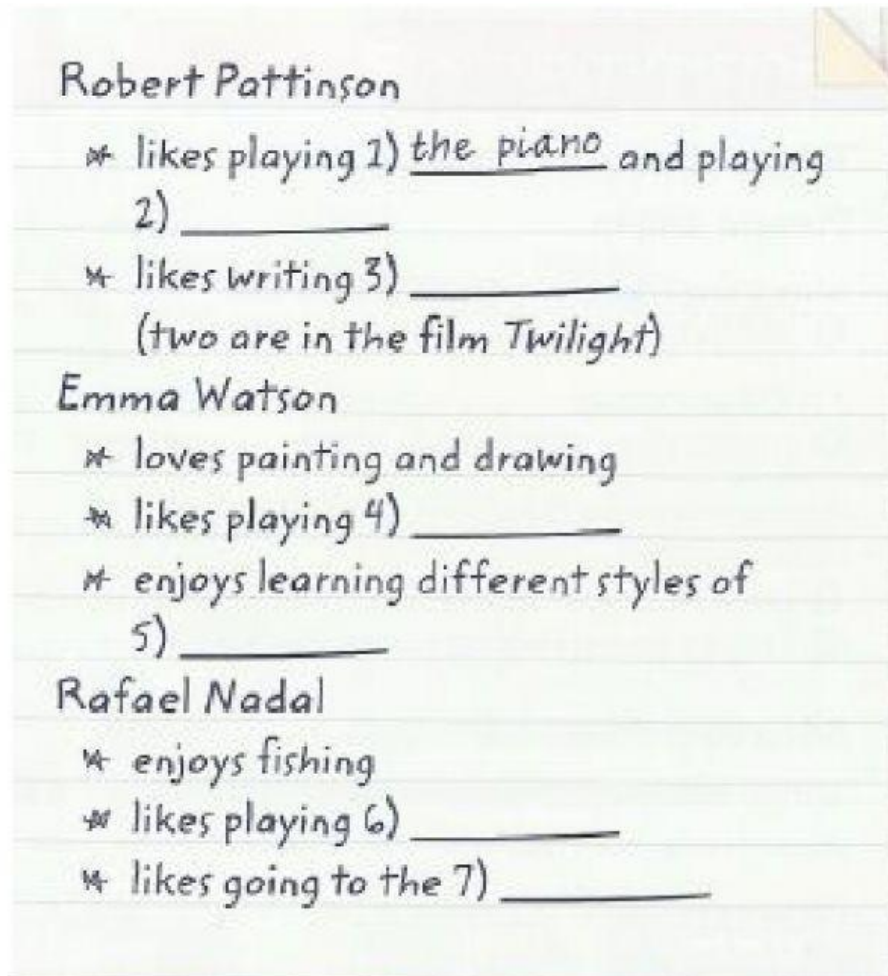 Robert Pattinson
* likes playing 1) the piano and playing
2) ________
* likes writing 3) ________
(two are in the film Twilight)
Emma Watson
* loves painting and drawing
* likes playing 4) ________
* enjoys learning different styles of
5) ________
Rafael Nadal
* enjoys fishing
* likes playing 6) ________
* likes going to the 7) ________